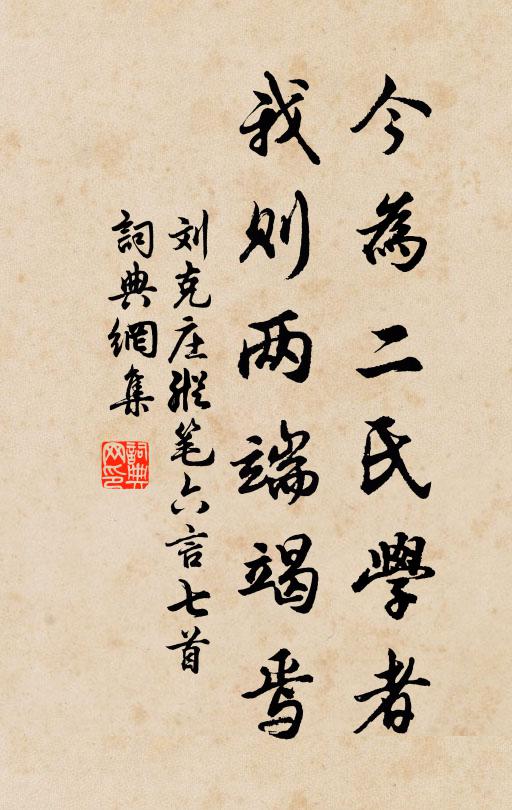 今為二氏學者
我则两端竭焉
刘克庄縱笔六言七首
詞典網集
詞典
网印